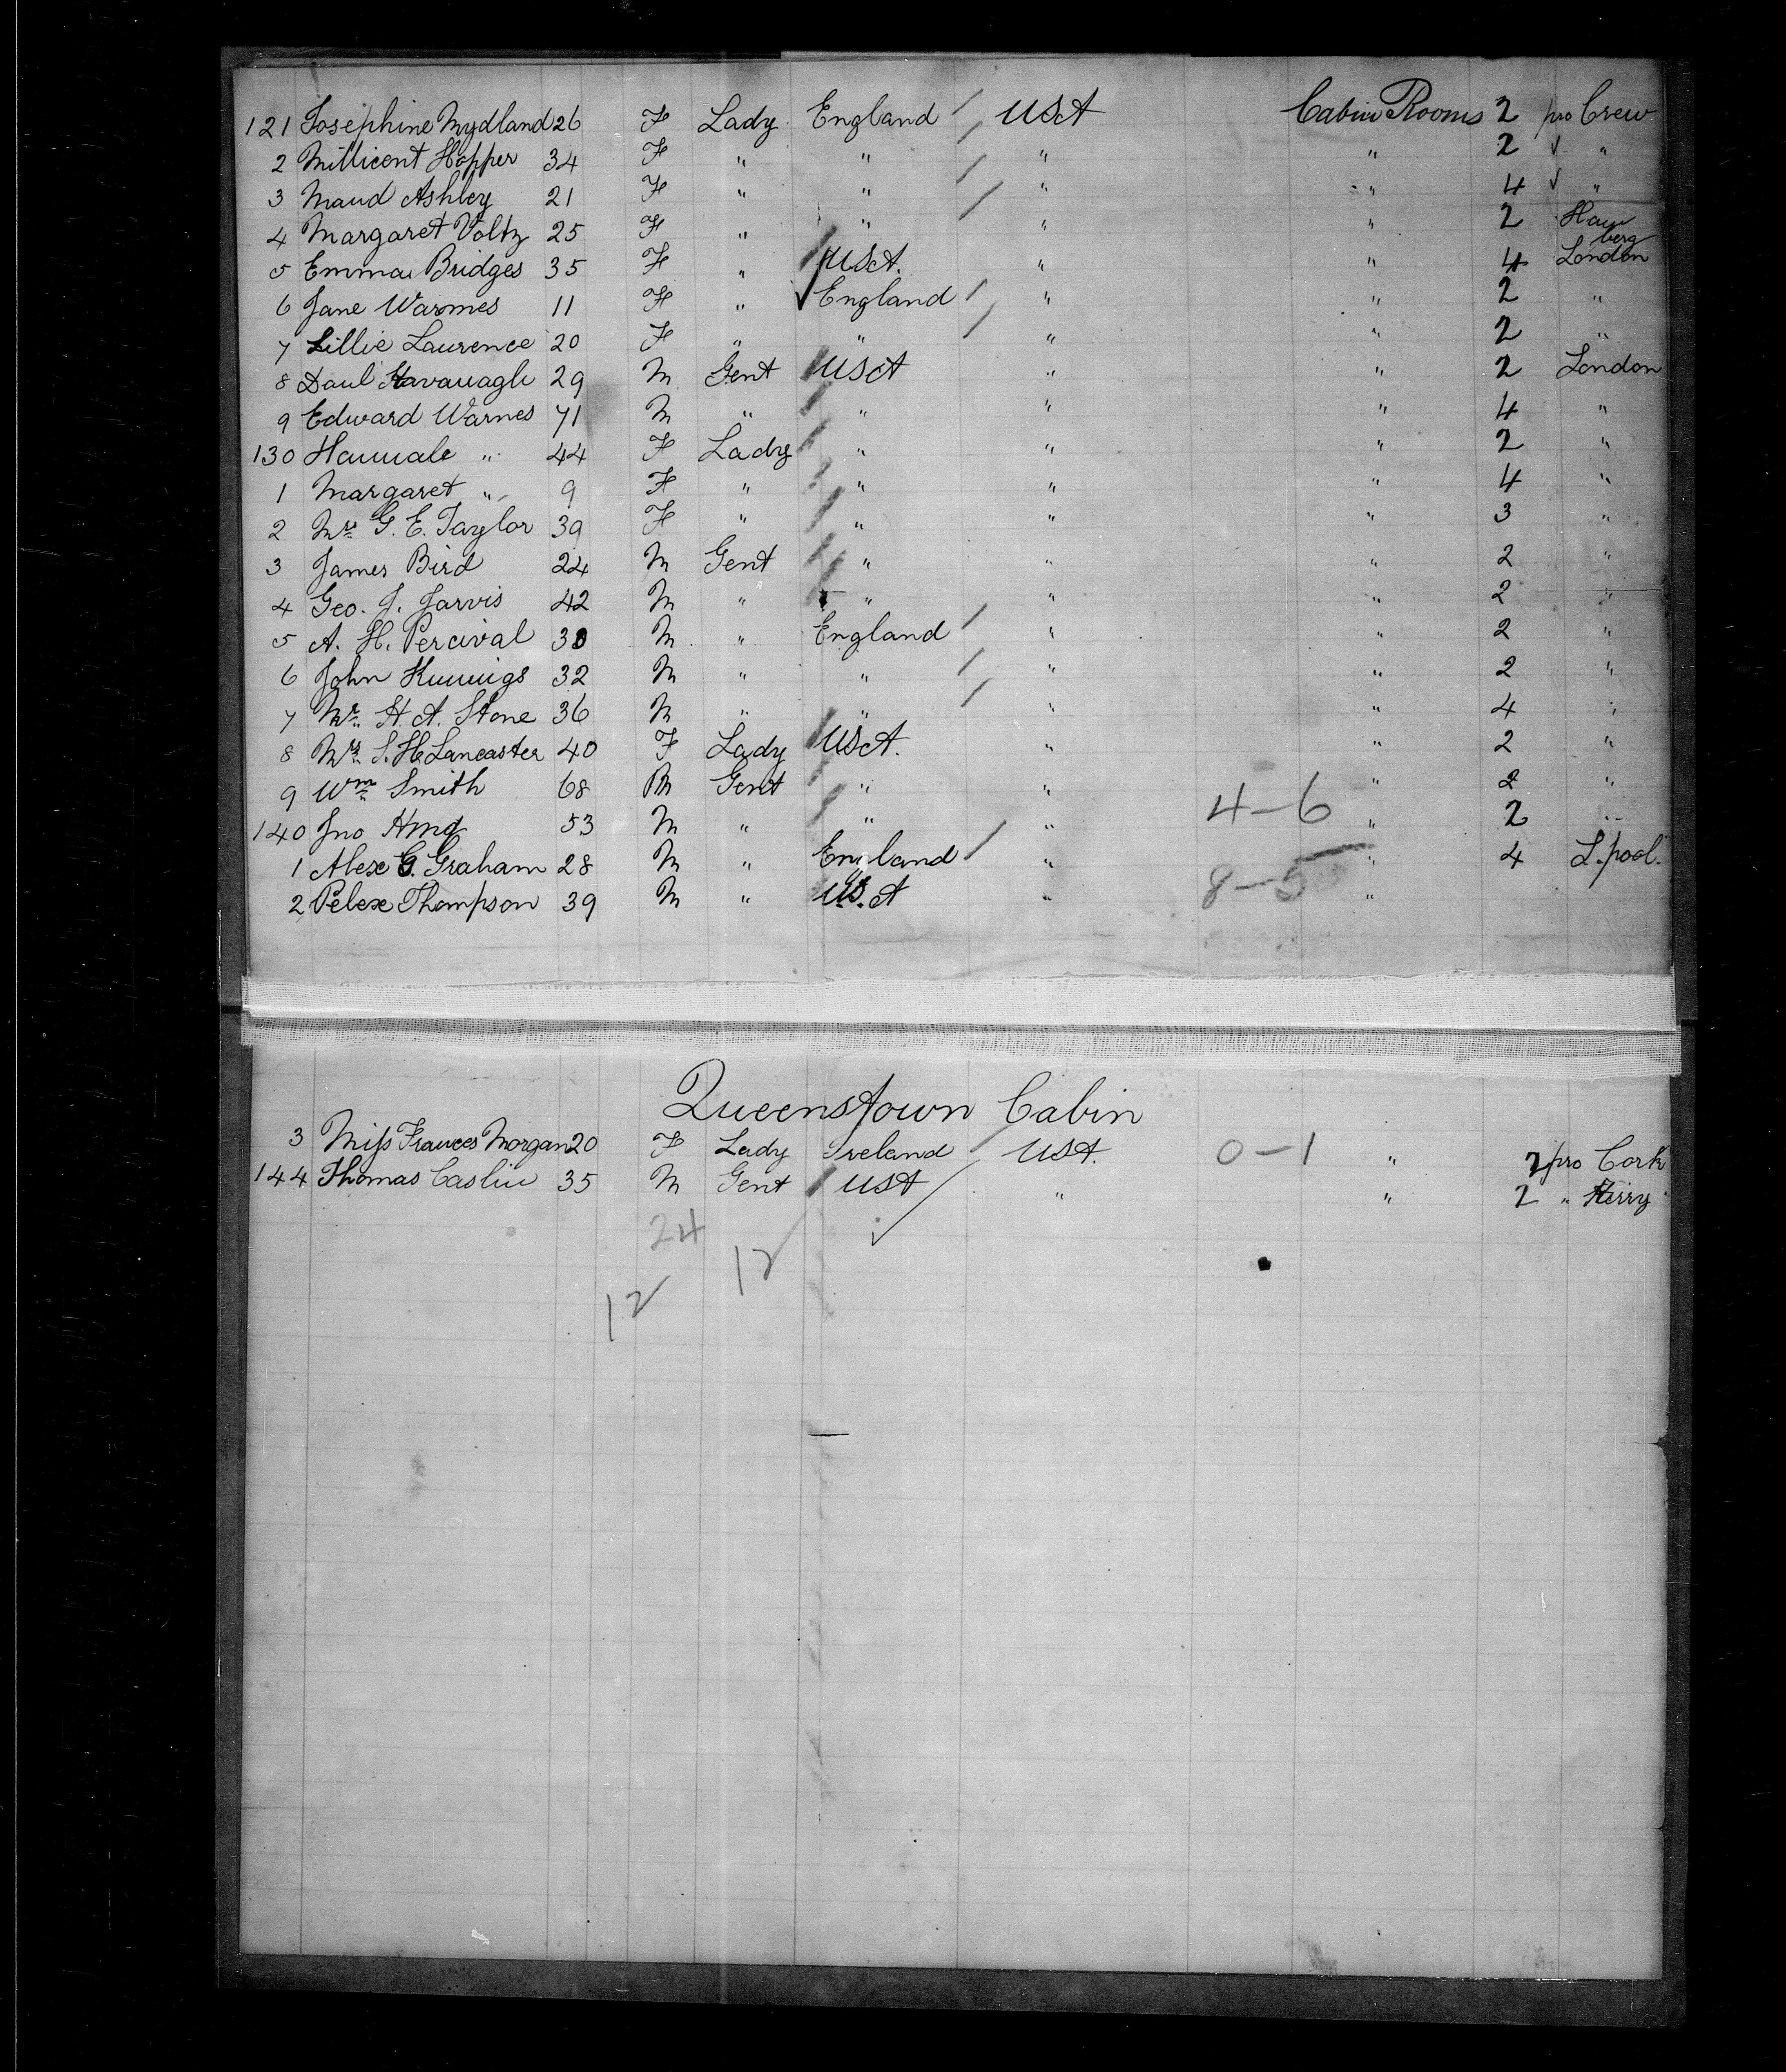 121 Josephine Mydland 26 F Lady England / USA Cabin Rooms 2 pro Crew
2 Millicent Hopper 34 F " " / " " 2 ✓ "
3 Maud Ashley 21 F " " / " " 4 ✓ "
4 Margaret Voltz 25 F " " / " " 2 Hamberg
5 Emma Bridges 35 F " / USA. " " 4 London
6 Jane Warmes 11 F " ✓ England / " " 2 "
7 Lillie Laurence 20 F " " / " " 2 "
8 Paul Kavanagh 29 M Gent / USA " " 2 London
9 Edward Warnes 71 M " / " " " 4 "
130 " 44 F Lady / " " " 2 "
1 Margaret " 9 F " / " " " 4 "
2 Mrs G. E. Taylor 39 F " / " " " 3 "
3 James Bird 24 M Gent / " " " 2 "
4 Geo. J. Jarvis 42 M " / " " " 2 "
5 A. H. Percival 30 M " England / " " 2 "
6 John 32 M " " / " " 2 "
7 Mr. H. A. Stone 36 M " " / " " 4 "
8 Mrs S. H. Lancaster 40 F Lady / USA. " " 2 "
9 Wm Smith 68 M Gent / " " " 2 "
140 Jno 53 M " / " " 4-6 " 2 "
1 Alex G. Graham 28 M " England / " " 4 L.pool.
2 Pelex Thompson 39 M " U.S.A " 8-5 "
Queenstown Cabin
3 Miss Frances Morgan 20 F Lady Ireland / USA. 0-1 " 2 pro Cork
144 Thomas Caslin 35 M Gent / USA / " " 2 " Kerry
24
12
12